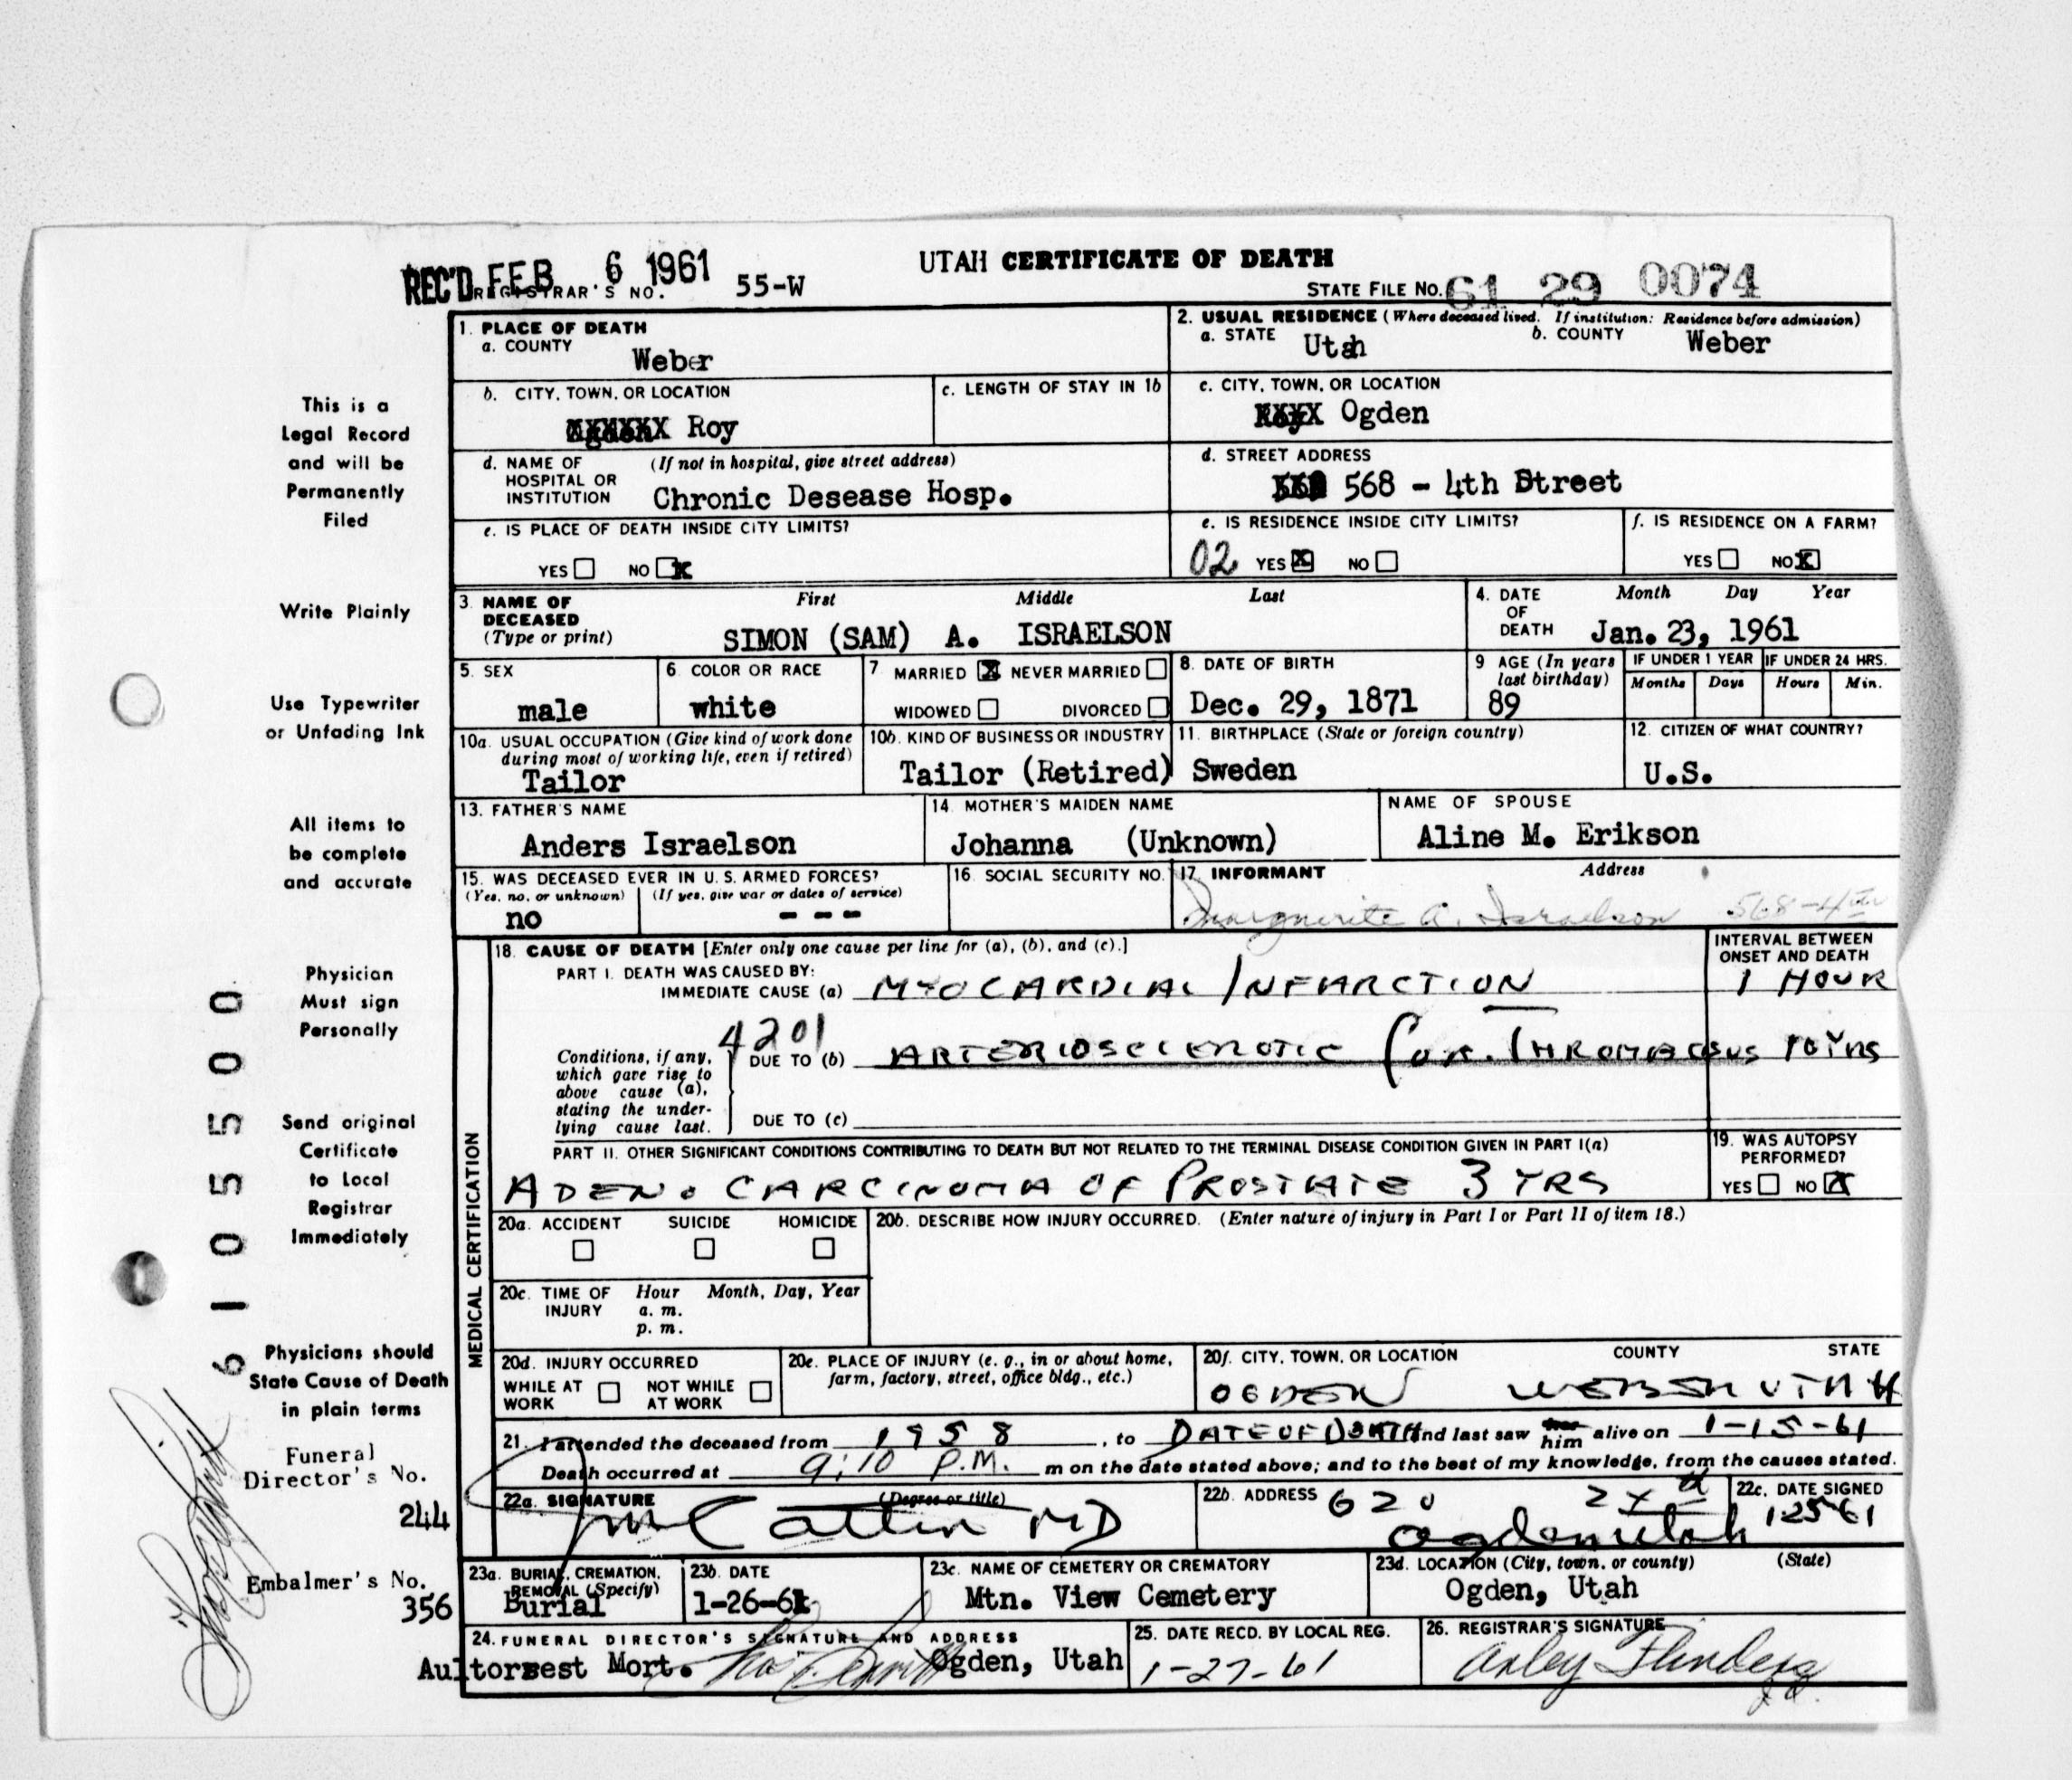 UTAH CERTIFICATE OF DEATH
REC'D FEB 6 1961
REGISTRAR'S NO. 55-W
STATE FILE No. 61 29 0074
This is a
Legal Record
and will be
Permanently
Filed
Write Plainly
Use Typewriter
or Unfading Ink
All items to
be complete
and accurate
Physician
Must sign
Personally
Send original
Certificate
to Local
Registrar
Immediately
Physicians should
State Cause of Death
in plain terms
Funeral
Director's No.
244
Embalmer's No.
356
61055500
1. PLACE OF DEATH
a. COUNTY
Weber
2. USUAL RESIDENCE (Where deceased lived. If institution: Residence before admission)
a. STATE Utah b. COUNTY Weber
b. CITY, TOWN, OR LOCATION
Roy
c. LENGTH OF STAY IN 1b
c. CITY, TOWN, OR LOCATION
Ogden
d. NAME OF (If not in hospital, give street address)
HOSPITAL OR
INSTITUTION Chronic Desease Hosp.
d. STREET ADDRESS
568 - 4th Street
e. IS PLACE OF DEATH INSIDE CITY LIMITS?
YES NO X
e. IS RESIDENCE INSIDE CITY LIMITS?
02 YES X NO
f. IS RESIDENCE ON A FARM?
YES NO X
3. NAME OF First Middle Last
DECEASED
(Type or print) SIMON (SAM) A. ISRAELSON
4. DATE Month Day Year
OF
DEATH Jan. 23, 1961
5. SEX
male
6. COLOR OR RACE
white
7 MARRIED X NEVER MARRIED
WIDOWED DIVORCED
8. DATE OF BIRTH
Dec. 29, 1871
9 AGE (In years
last birthday)
89
IF UNDER 1 YEAR IF UNDER 24 HRS.
Months Days Hours Min.
10a. USUAL OCCUPATION (Give kind of work done
during most of working life, even if retired)
Tailor
10b. KIND OF BUSINESS OR INDUSTRY
Tailor (Retired)
11. BIRTHPLACE (State or foreign country)
Sweden
12. CITIZEN OF WHAT COUNTRY?
U.S.
13. FATHER'S NAME
Anders Israelson
14. MOTHER'S MAIDEN NAME
Johanna (Unknown)
NAME OF SPOUSE
Aline M. Erikson
15. WAS DECEASED EVER IN U. S. ARMED FORCES?
(Yes, no, or unknown) (If yes, give war or dates of service)
no - - -
16. SOCIAL SECURITY NO.
17. INFORMANT Address
Marguerite A. Israelson 568-4th
18. CAUSE OF DEATH [Enter only one cause per line for (a), (b), and (c).]
INTERVAL BETWEEN
ONSET AND DEATH
PART I. DEATH WAS CAUSED BY:
IMMEDIATE CAUSE (a) MYOCARDIAL INFARCTION 1 HOUR
4201
Conditions, if any,
which gave rise to
above cause (a),
stating the under-
lying cause last.
DUE TO (b) ARTERIOSCLEROTIC COR. THROMBOSUS 10 YRS
DUE TO (c)
PART II. OTHER SIGNIFICANT CONDITIONS CONTRIBUTING TO DEATH BUT NOT RELATED TO THE TERMINAL DISEASE CONDITION GIVEN IN PART I(a)
ADENO CARCINOMA OF PROSTATE 3 YRS
19. WAS AUTOPSY
PERFORMED?
YES NO X
MEDICAL CERTIFICATION
20a. ACCIDENT SUICIDE HOMICIDE
20b. DESCRIBE HOW INJURY OCCURRED. (Enter nature of injury in Part I or Part II of item 18.)
20c. TIME OF Hour Month, Day, Year
INJURY a. m.
p. m.
20d. INJURY OCCURRED
WHILE AT NOT WHILE
WORK AT WORK
20e. PLACE OF INJURY (e. g., in or about home,
farm, factory, street, office bldg., etc.)
20f. CITY, TOWN, OR LOCATION COUNTY STATE
OGDEN WEBER UTAH
21. I attended the deceased from 1958, to DATE OF DEATH and last saw her him alive on 1-15-61
Death occurred at 9:10 P.M. m on the date stated above; and to the best of my knowledge, from the causes stated.
22a. SIGNATURE (Degree or title)
MD
22b. ADDRESS 620
Ogden Utah
22c. DATE SIGNED
12561
23a. BURIAL, CREMATION,
REMOVAL (Specify)
Burial
23b. DATE
1-26-61
23c. NAME OF CEMETERY OR CREMATORY
Mtn. View Cemetery
23d. LOCATION (City, town, or county) (State)
Ogden, Utah
24. FUNERAL DIRECTOR'S SIGNATURE AND ADDRESS
Aultorest Mort. Ogden, Utah
25. DATE RECD. BY LOCAL REG.
1-27-61
26. REGISTRAR'S SIGNATURE
Arley Flinders